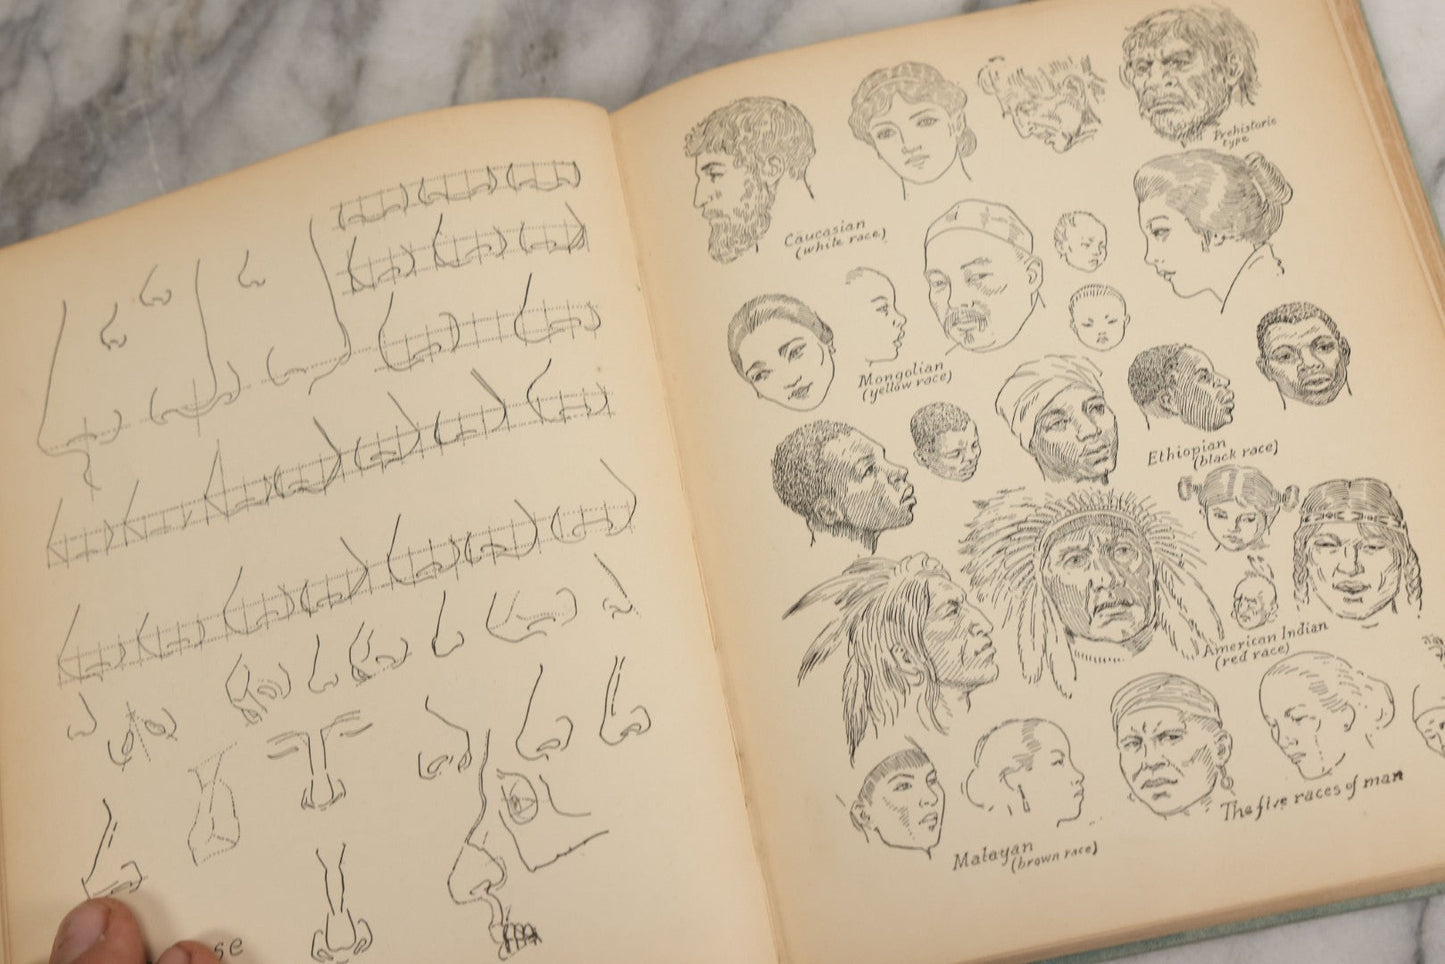 Prehistoric
type
Caucasian
(white race)
Mongolian
(yellow race)
Ethiopian
(black race)
American Indian
(red race)
The five races of man
Malayan
(brown race)
se